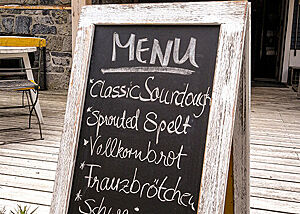 MENU
*Classic Sourdough
*Sprouted Spelt
*Vollkornbrot
*Franzbrötchen